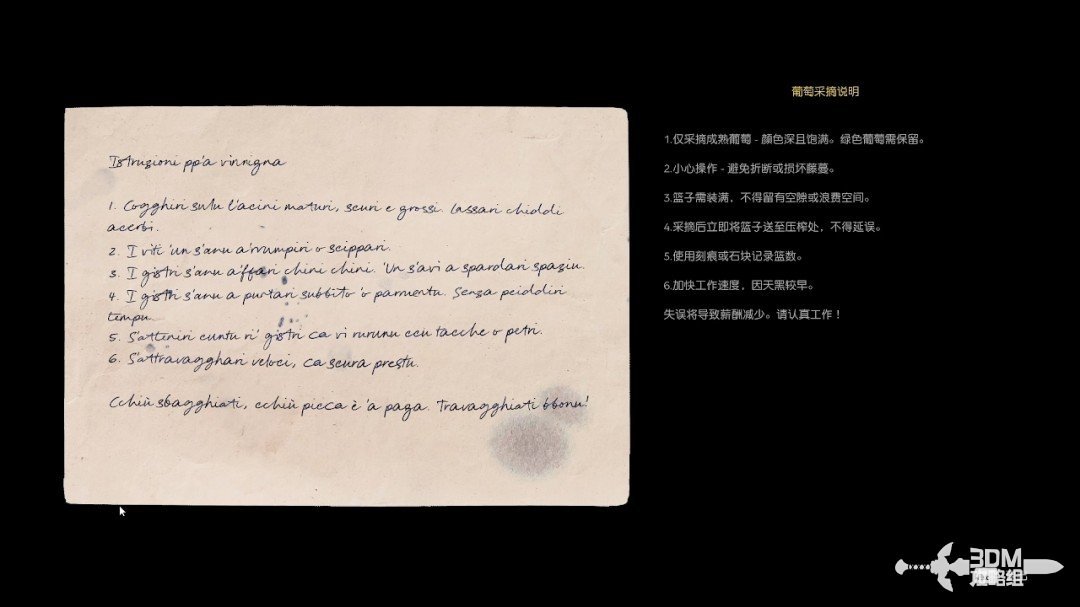 Istruzioni pp'a vinnigna
1. Cogghiri sulu l'acini maturi, scuri e grossi. Lassari chiddi
acerbi.
2. I viti 'un s'anu a'rrumpiri o scippari.
3. I gistri s'anu a'ffari chini chini. 'Un s'avi a spardari spaziu.
4. I gistri s'anu a purtari subbito 'o parmentu. Senza peiddiri
tempu.
5. S'atteniri cuntu ri' gistri ca vi rurunu ccu tacche o petri.
6. S'attravagghari veloci, ca scura prestu.
Cchiù sbagghiati, cchiù picca è 'a paga. Travagghiati bbonu!
葡萄采摘说明
1.仅采摘成熟葡萄 - 颜色深且饱满。绿色葡萄需保留。
2.小心操作 - 避免折断或损坏藤蔓。
3.篮子需装满，不得留有空隙或浪费空间。
4.采摘后立即将篮子送至压榨处，不得延误。
5.使用刻痕或石块记录篮数。
6.加快工作速度，因天黑较早。
失误将导致薪酬减少。请认真工作！
3DM
攻略组